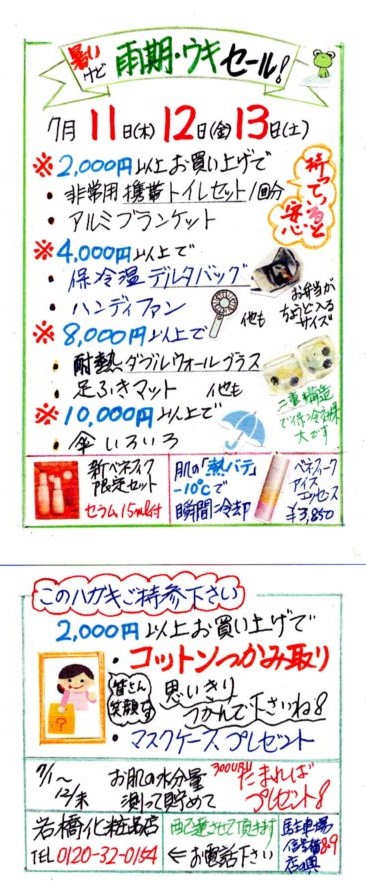 暑い
けど
雨期・ウキセール!
7月11日(木)12日(金)13日(土)
※2,000円以上お買い上げで
・非常用携帯トイレセット/1回分
・アルミブランケット
持っていると
安心
※4,000円以上で
・保冷温デルタバッグ
・ハンディファン
他も
お弁当が
ちょうど入る
サイズ
※8,000円以上で
・耐熱ダブルウォールグラス
・足ふきマット 他も
二重構造
で保冷効果
大です
※10,000円以上で
・傘いろいろ
新ベネフィーク
限定セット
セラム15ml付
肌の「熱バテ」
-10℃で
瞬間冷却
ベネフィーク
アイス
エッセンス
¥3,850
このハガキご持参下さい
2,000円以上お買い上げで
・コットンつかみ取り
皆さん
笑顔です
思いきり
つかんで下さいね!
・マスクケースプレゼント
7/1〜
12/末
お肌の水分量
測って貯めて
たまれば
プレゼント!
岩橋化粧品店
TEL 0120-32-0154
配達させて頂きます
←お電話下さい
駐車場